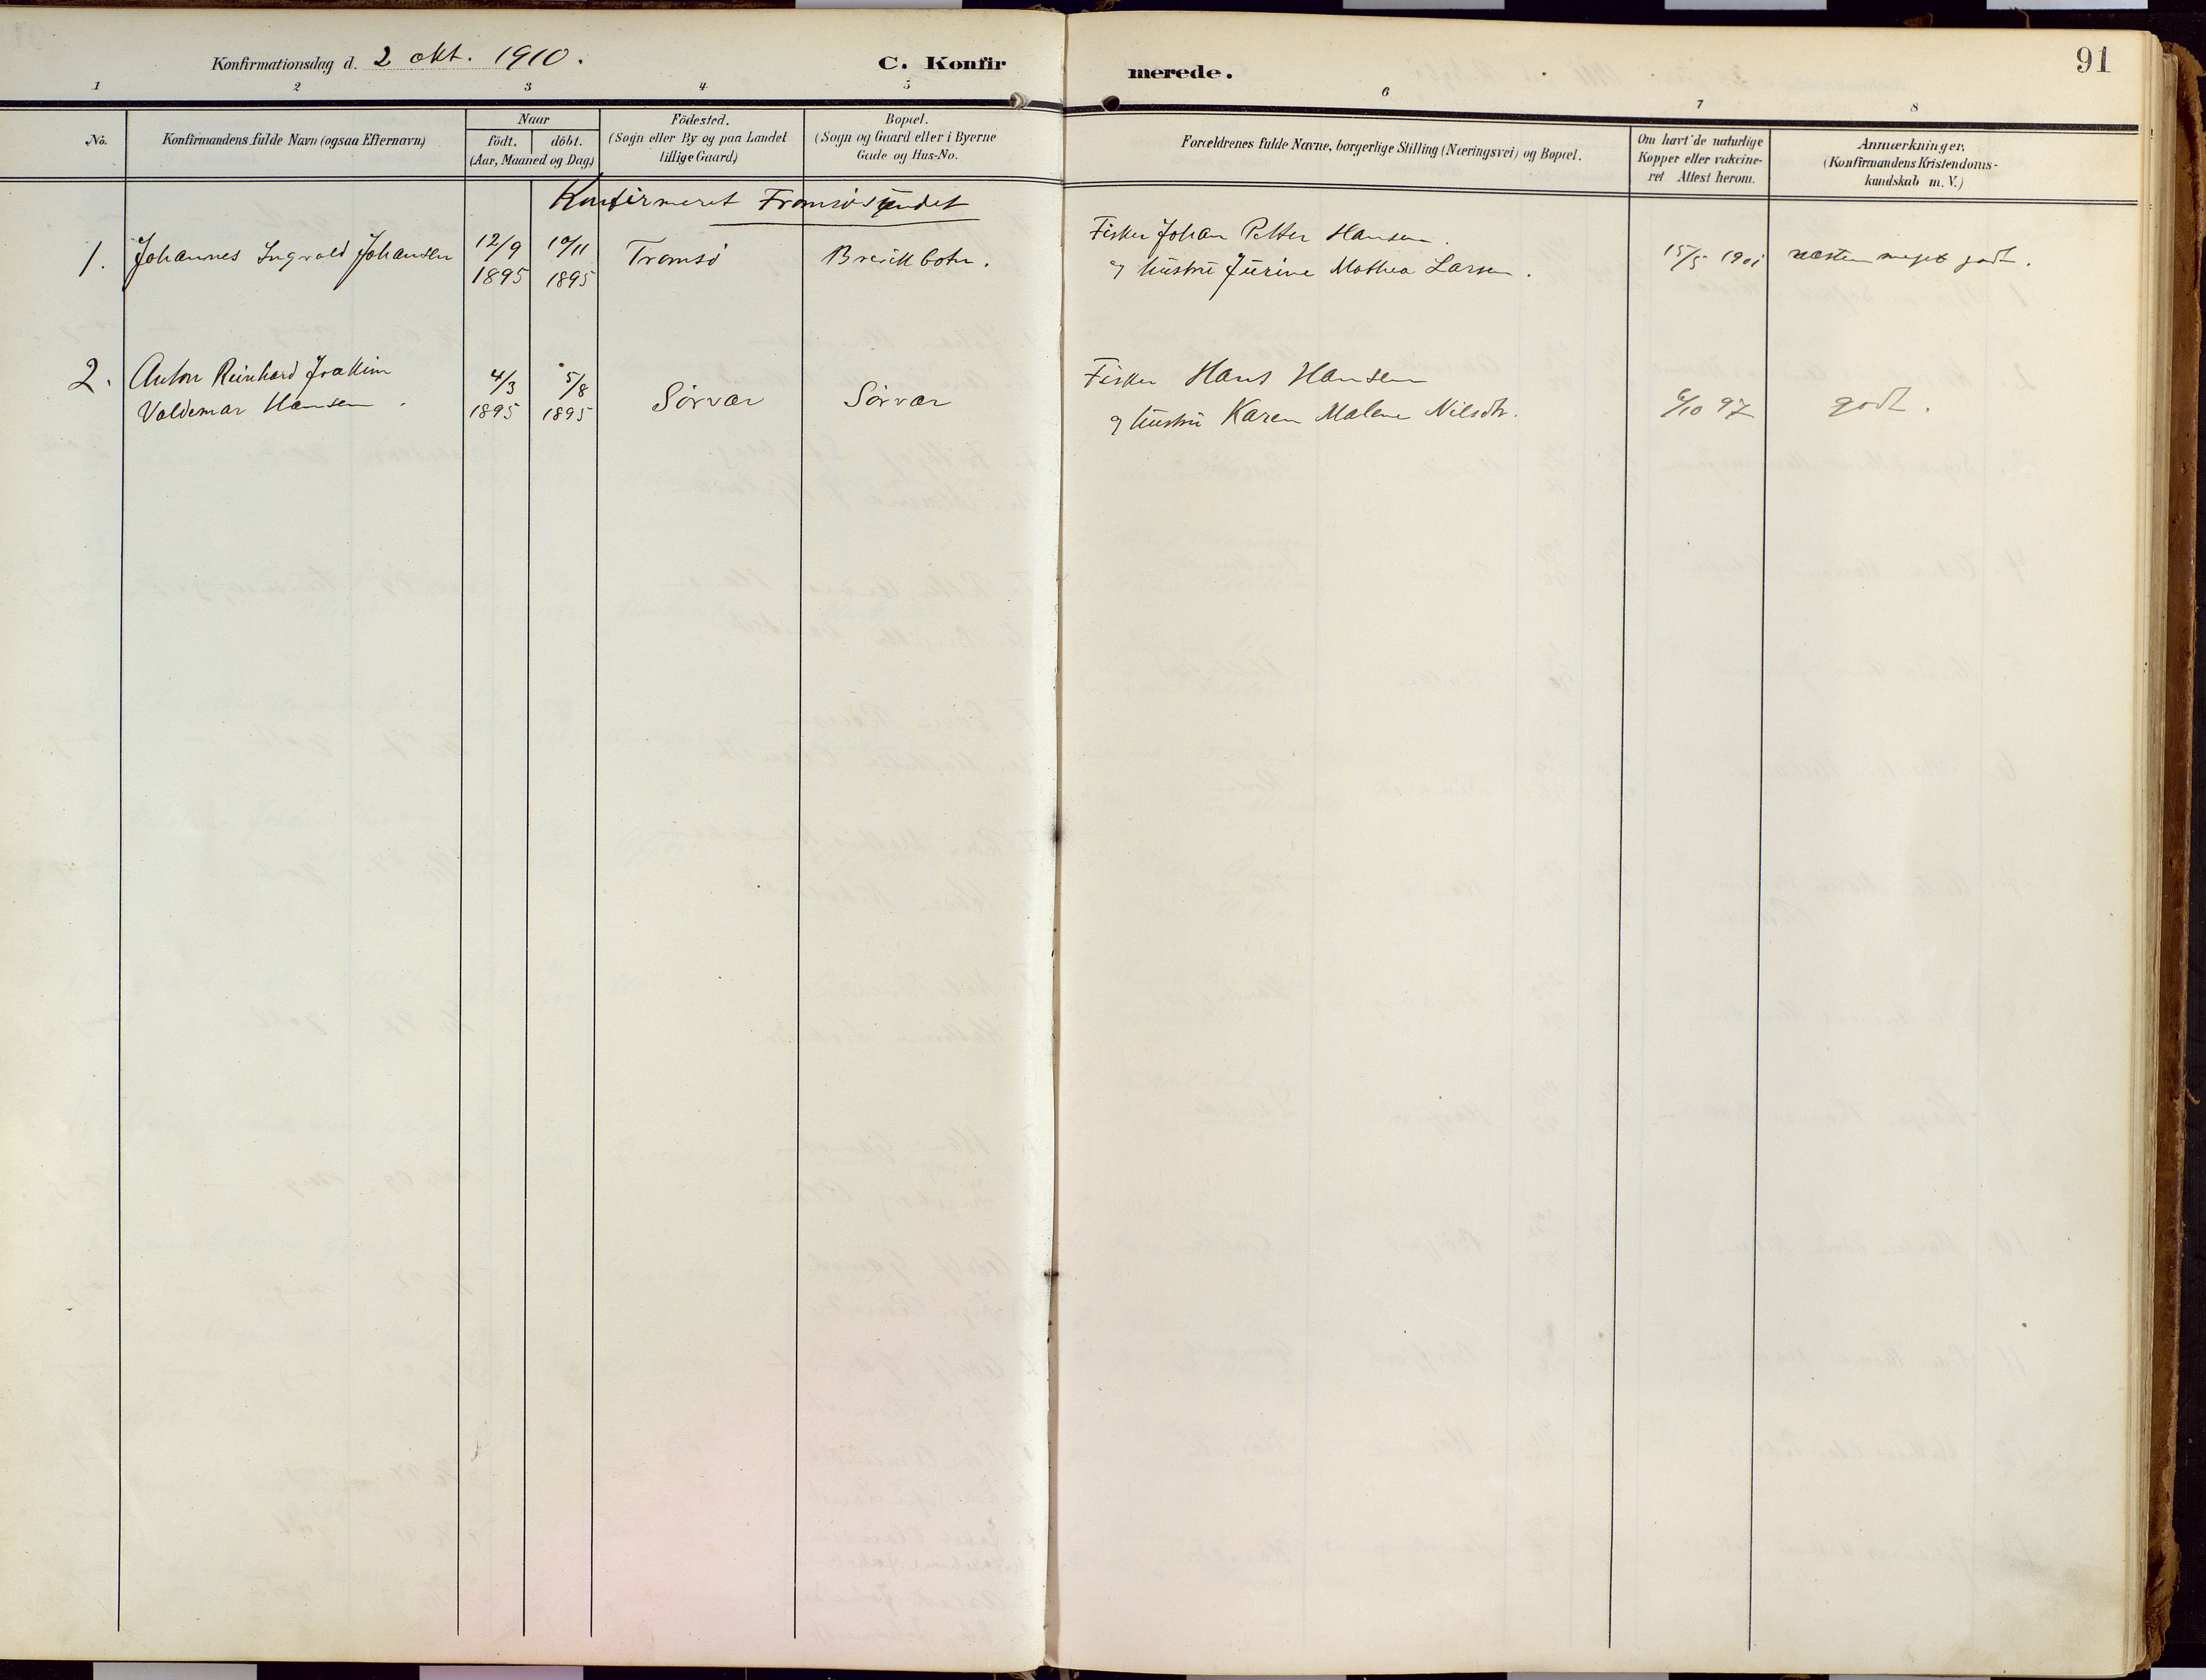 Konfirmationsdag d. 2 okt. 1910.
C. Konfir
merede.
91
1 2 3 4 5 6 7 8
No.
Konfirmandens fulde Navn (ogsaa Efternavn)
Naar
födt. döbt.
(Aar, Maaned og Dag)
Födested.
(Sogn eller By og paa Landet
tillige Gaard)
Bopæl.
(Sogn og Gaard eller i Byerne
Gade og Hus-No.
Forældrenes fulde Navne, borgerlige Stilling (Næringsvei) og Bopæl.
Om havt de naturlige
Kopper eller vakcine-
ret Attest herom.
Anmærkninger.
(Konfirmandens Kristendoms-
kundskab m. V.)
Konfirmeret Tromsösundet
1. Johannes Ingvald Johansen
12/9
1895
10/11
1895
Tromsö
Breivikbotn.
Fisker Johan Petter Hansen.
og hustru Jurine Mathea Larsen.
15/5 1901
næsten meget godt.
2. Anton Reinhard Joakim
Valdemar Hansen.
4/3
1895
5/8
1895
Sörvær
Sörvær
Fisker Hans Hansen
og hustru Karen Malene Nilsdtr.
6/10 97
godt.